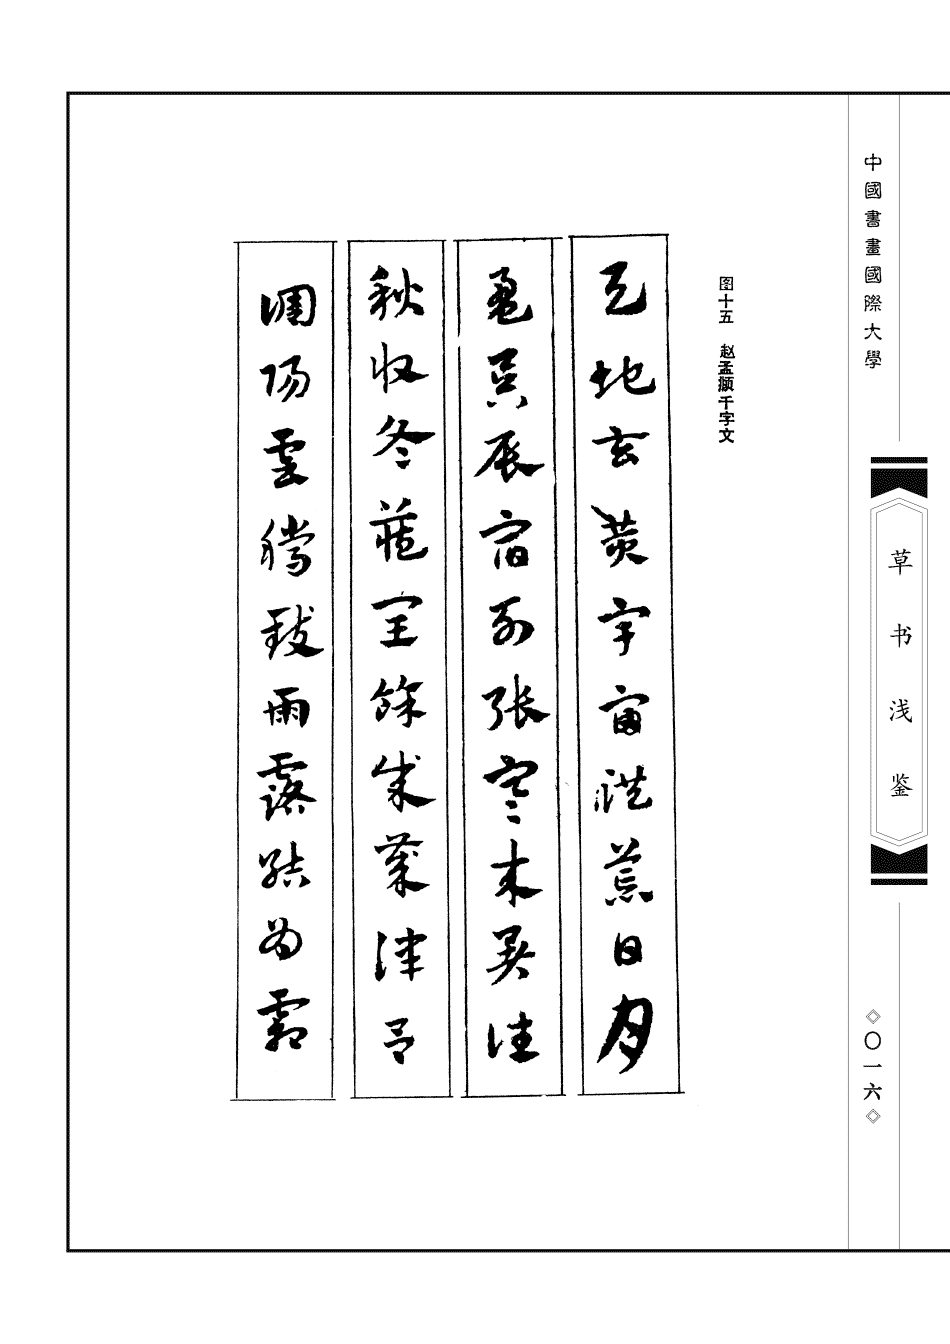 中國書畫國際大學
草书浅鉴
〇一六
图十五 赵孟頫千字文
天地玄黃宇宙洪荒日月
盈昃辰宿列張寒来暑往
秋收冬藏閏餘成歲律呂
調陽雲騰致雨露結為霜